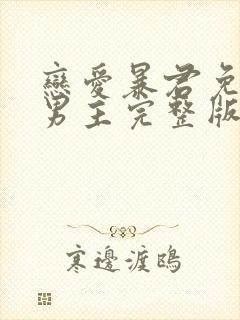 戀愛暴君免
男主完整版
寒邊渡鴎